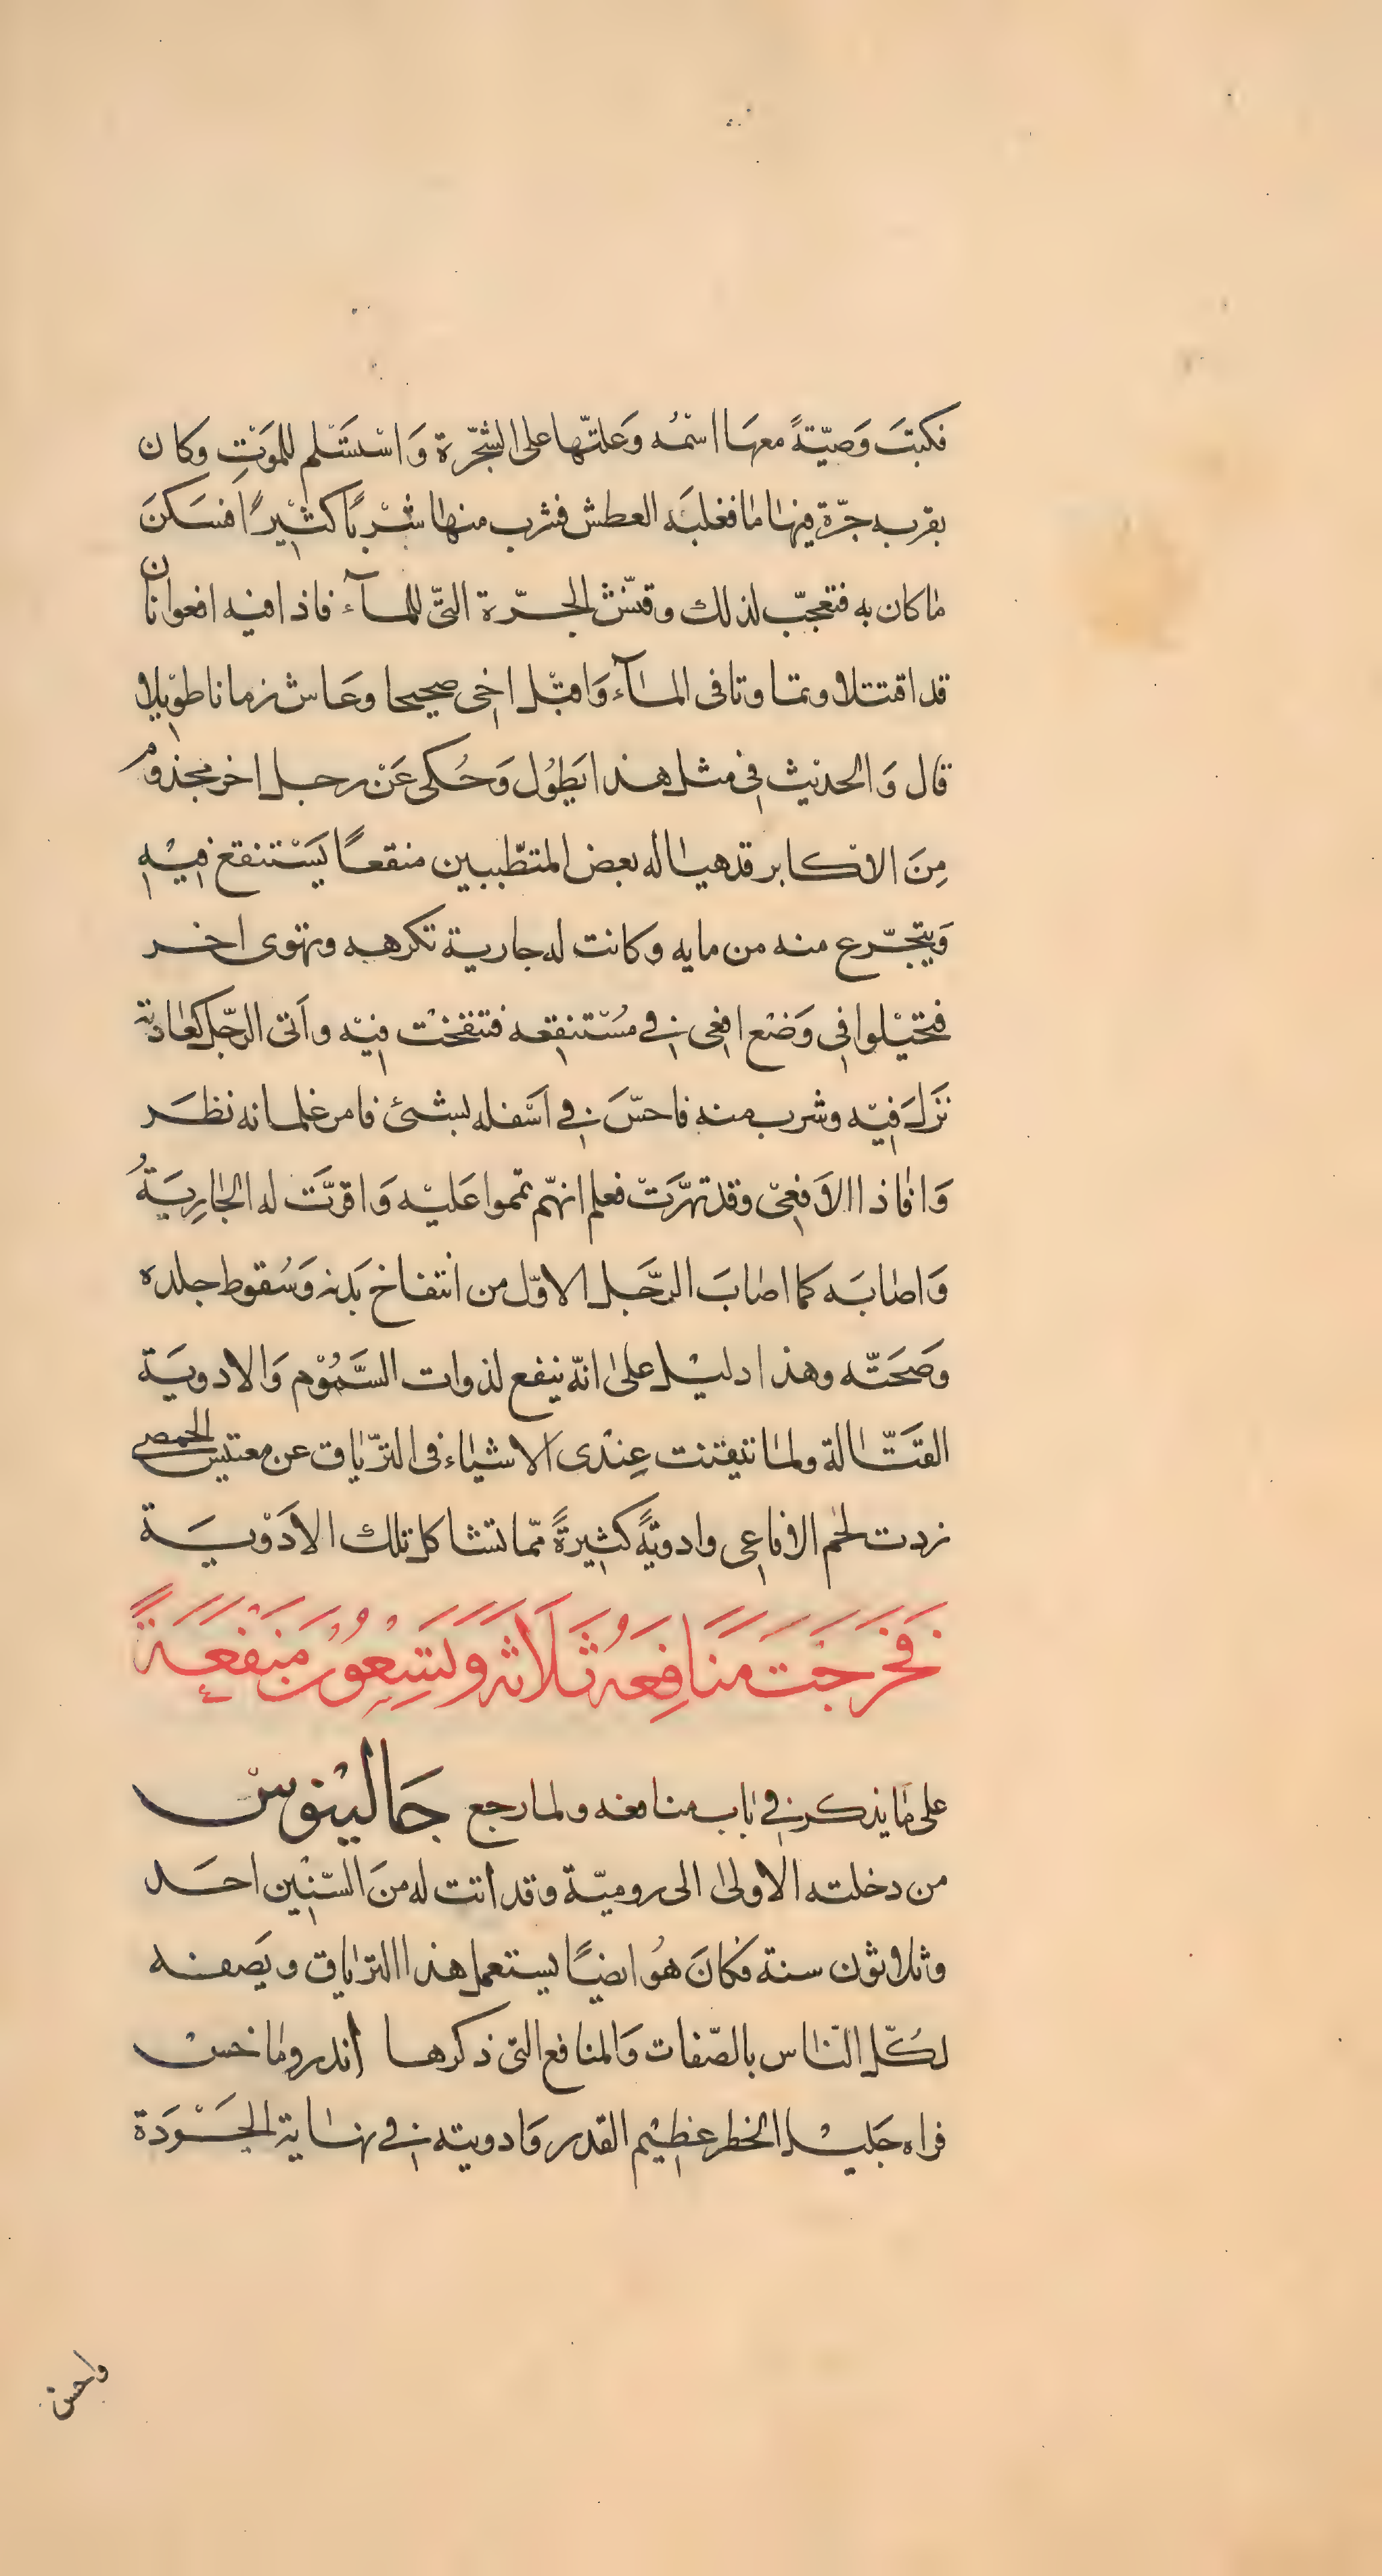 فكتبَ وَصيّتةً معهَا اسْمُه وَعلتّها على الشّجَرة وَاسْتسَتَلم للمَوْتِ وكان
بقربه جرّة فيها ما فغلبَه العطش فشرب منها شُرْبًا كثيْرًا فسَكنَ
ما كان به فتعجبّ لذلك وفتّش الجرّة التّى للمآء فاذا فيه افعوانان
قد اقتتلا وتما وتا فى المآء وَاقبْل اخى صحيحا وعَاش زمانا طوْيلا
قال وَالحديث فى مثل هذا يَطوُل وَحُكى عَنْ رجل اخر مجذوم
مِنَ الاكابر قد هيا له بعض المتطّببين منقعًا يَسْتنقع فيْهِ
وَيتجّرع منه من مايه وكانت له جارية تكرهه وتهوى اخر
فتحيْلوا فى وَضْع افعى فى مُسْتنقعه فتنفخت فيْه واَتى الرّجل كعادته
نَزَلَ فيْه وشرب منه فاحسّ فى اسَفله بشئ فامر غلمانه نظَر
وَافاذا الافعىْ وقد تهرّتْ فعلم انهّم تمموا عَليْه وَاقرّت له الجارِيَةُ
وَاصابَه كما اصابَ الرّجَل الاوّل من انتفاخ بَدنه وَسُقوط جلده
وَصحَتّه وهذا دليْل على انّه ينفع لذوات السَّمُوْم وَالادويَة
القتَّالة ولما تيقنت عِنْدى الاشياء فى الترّياق عن مغنيس الحمصى
زدت لحَم الافاعى وادويّةً كثيرةً ممّا تتشاكل تلك الادَوْيَة
فَخَرجَت مَنَافِعَهُ ثَلَاثه وَتسَعِوُن مَنْفَعَةً
على ما يذكر فى باب منافعه ولما رجع جَاليْنوسْ
من دخلته الاولىٰ الى روميّة وقد اتت له منَ السّنيْن احَد
وثلاثون سنة فكانَ هوُ ايضًا يستعمل هذا الترياق ويَصفه
لكُلّ النّاس بالصّفات وَالمنافع التى ذكرها اندروماخسْ
فراه جَليْل الخطر عظيْم القدر وَادويته فى نهاية الجَوْدَة
واحسن